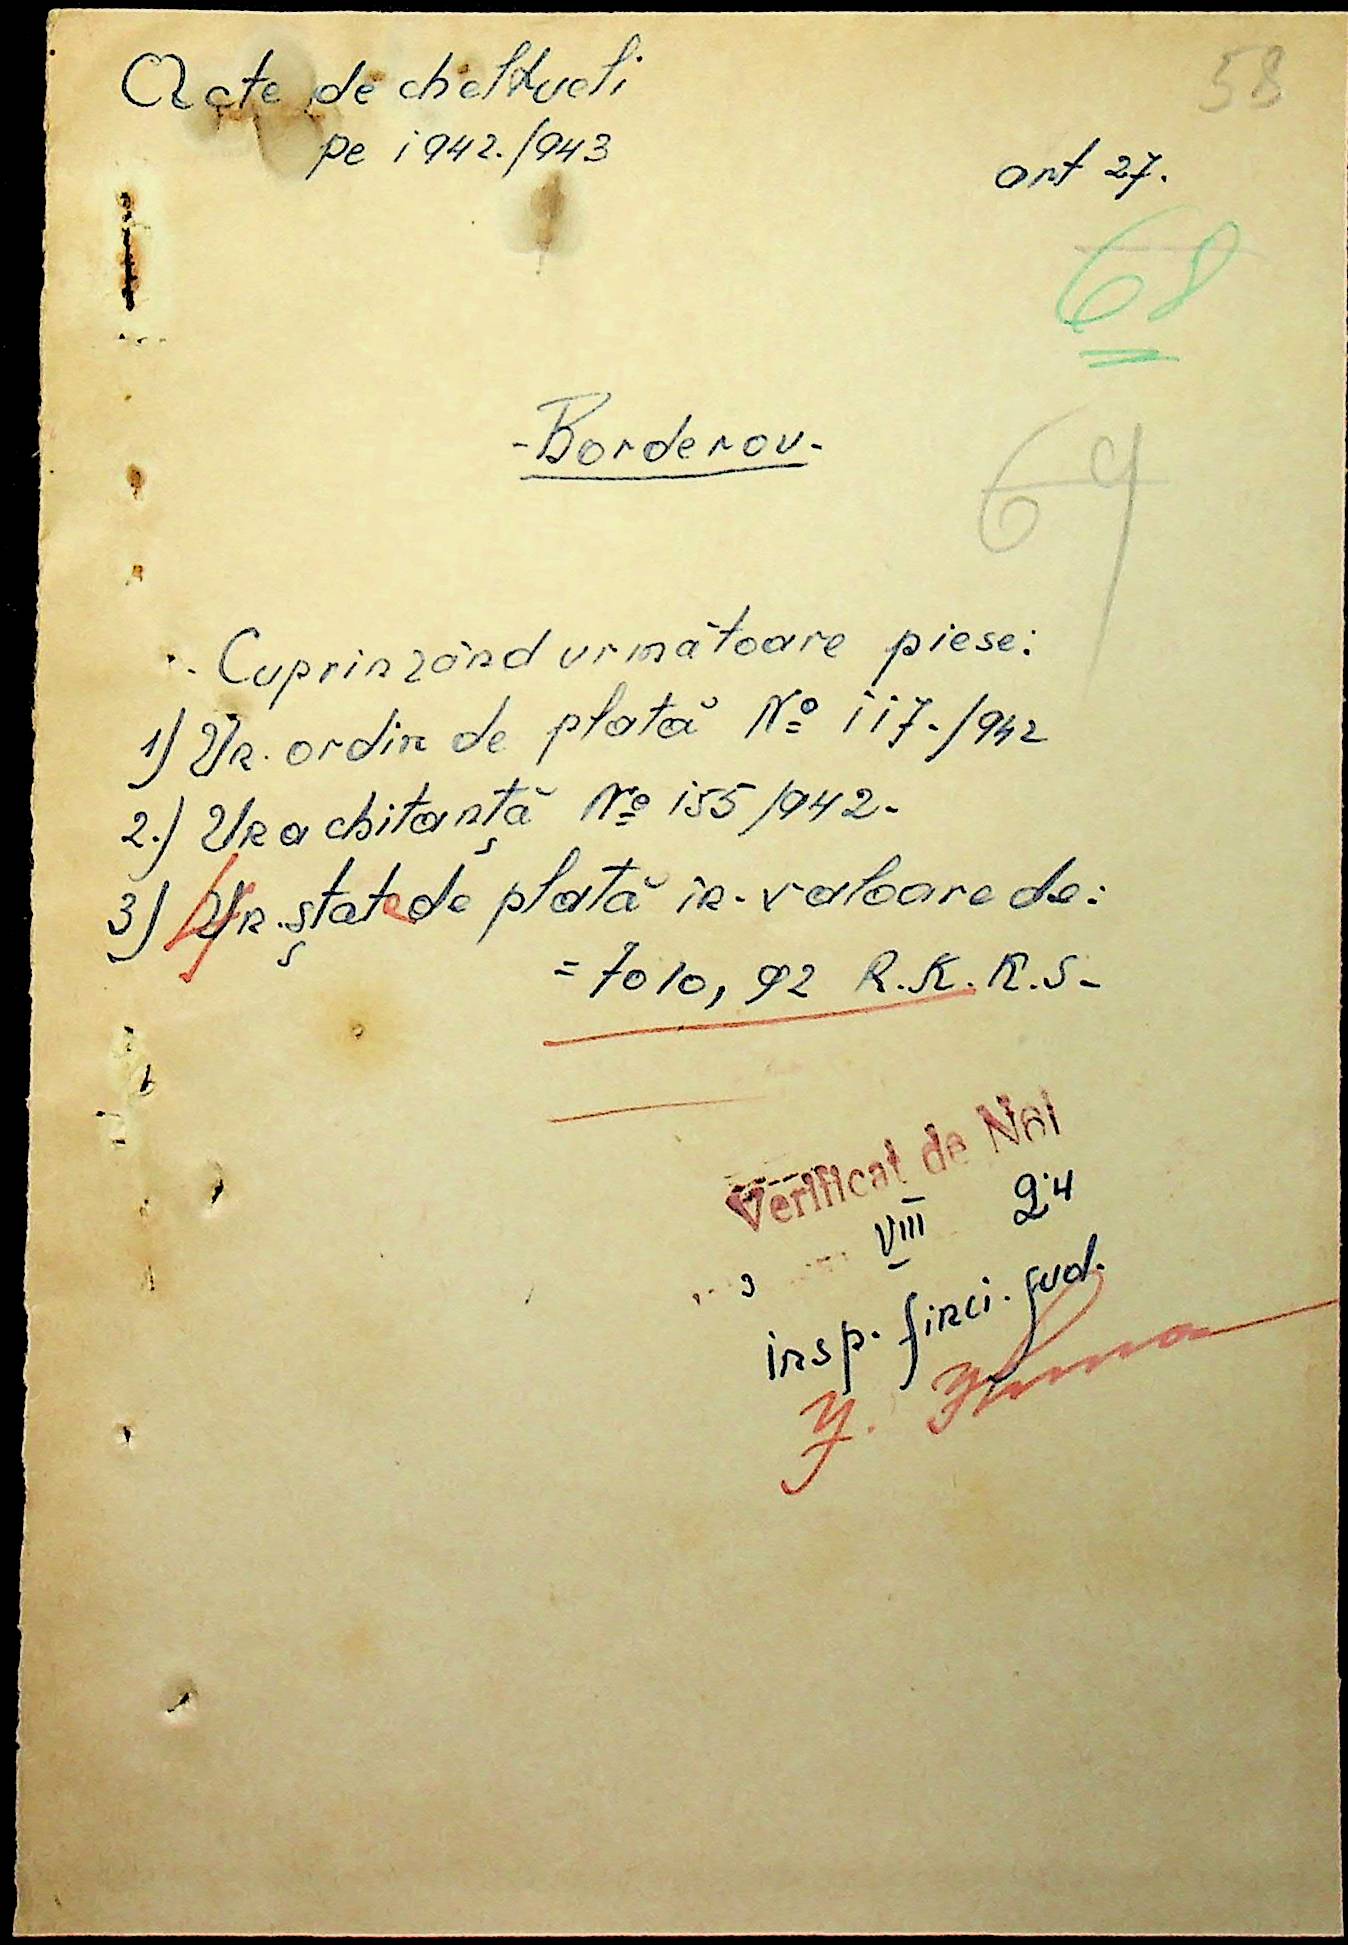 58
Acte de cheltueli
pe 1942./943
art 27.
68
- Borderou -
69
Cuprinzând următoare piese:
1) Un. ordin de plată № 117./942
2.) Una chitanță № 155/942-
3) 4 Un. ștate de plată in. valoare de:
= 7010,92 R.K.K.S-
Verificat de Noi
3 VIII 94
insp. finci. jud.